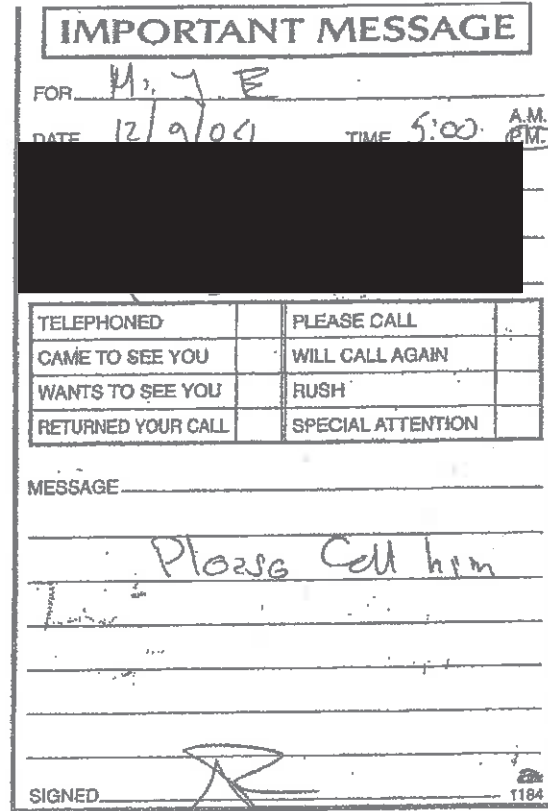 IMPORTANT MESSAGE
FOR M. J E
DATE 12/9/04 TIME 5:00 A.M. P.M.
TELEPHONED PLEASE CALL
CAME TO SEE YOU WILL CALL AGAIN
WANTS TO SEE YOU RUSH
RETURNED YOUR CALL SPECIAL ATTENTION
MESSAGE
Please Call him
SIGNED 1184